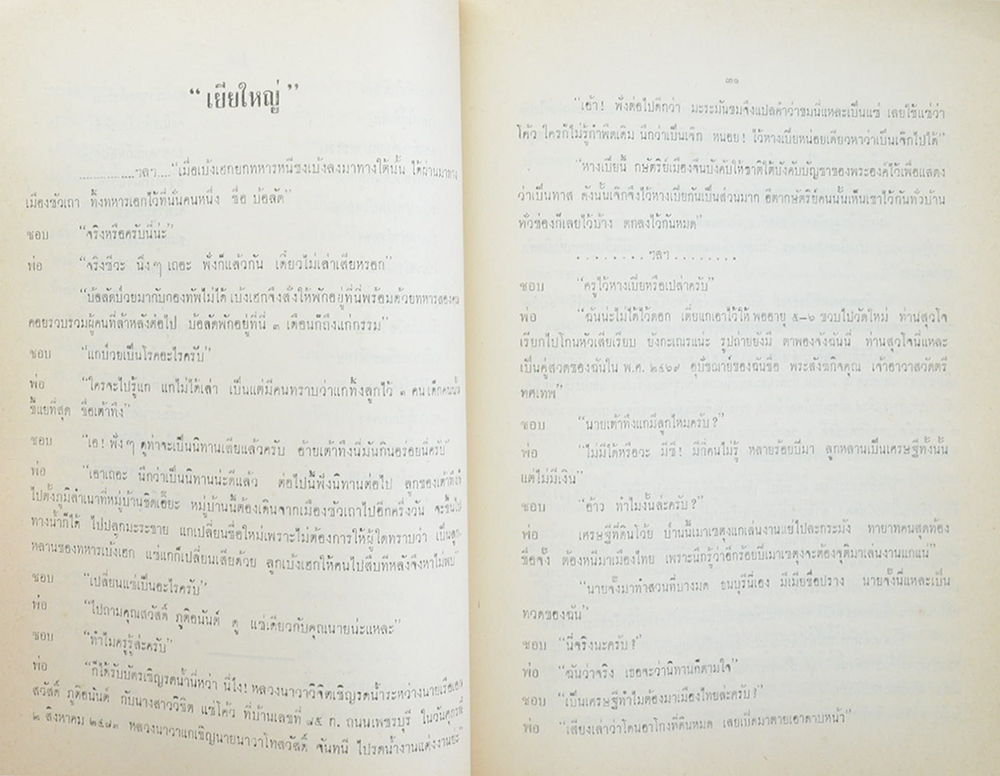 “ เยียใหญ่ ”
................ฯลฯ....“เมื่อเบ้งเฮกยกทหารหนีขงเบ้งลงมาทางใต้นั้น ได้ผ่านมาทาง
เมืองซัวเถา ทิ้งทหารเอกไว้ที่นั่นคนหนึ่ง ชื่อ บ้อลัด”
ชอบ “จริงหรือครับนี่น่ะ”
พ่อ “จริงซีวะ นิ่งๆ เถอะ ฟังก็แล้วกัน เดี๋ยวไม่เล่าเสียหรอก”
“บ้อลัดป่วยมากับกองทัพไม่ได้ เบ้งเฮกจึงสั่งให้พักอยู่ที่นี่พร้อมด้วยทหารสองคน
คอยรวบรวมผู้คนที่ล้าหลังต่อไป บ้อลัดพักอยู่ที่นี่ ๓ เดือนก็ถึงแก่กรรม”
ชอบ “แกป่วยเป็นโรคอะไรครับ”
พ่อ “ใครจะไปรู้แก แกไม่ได้เล่า เป็นแต่มีคนทราบว่าแกทิ้งลูกไว้ ๑ คน เด็กคนนั้น
ขี้แยที่สุด ชื่อเต้าทึง”
ชอบ “เอ! ฟังๆ ดูท่าจะเป็นนิทานเสียแล้วครับ อ้ายเต้าทึงนี่มันกินอร่อยนี่ครับ”
พ่อ “เอาเถอะ นึกว่าเป็นนิทานน่ะดีแล้ว ต่อไปนี้ฟังนิทานต่อไป ลูกของเต้าทึงได้
ไปตั้งภูมิลำเนาที่หมู่บ้านชิดเอี๊ยะ หมู่บ้านนี้ต้องเดินจากเมืองซัวเถาไปอีกครึ่งวัน จะขึ้นไป
ทางน้ำก็ได้ ไปปลูกมะระขาย แกเปลี่ยนชื่อใหม่เพราะไม่ต้องการให้ผู้ใดทราบว่า เป็นลูก
หลานของทหารเบ้งเฮก แซ่แกก็เปลี่ยนเสียด้วย ลูกเบ้งเฮกให้คนไปสืบทีหลังจึงหาไม่พบ”
ชอบ “เปลี่ยนแซ่เป็นอะไรครับ”
พ่อ “ไปถามคุณสวัสดิ์ ภูติอนันต์ ดู แซ่เดียวกับคุณนายน่ะแหละ”
ชอบ “ทำไมครูรู้ล่ะครับ”
พ่อ “ก็ได้รับบัตรเชิญรดน้ำนี่หว่า นี่ไง! หลวงนาวาวิจิตเชิญรดน้ำระหว่างนายเรือเอก
สวัสดิ์ ภูติอนันต์ กับนางสาววิชิต แซ่โค้ว ที่บ้านเลขที่ ๔๕ ก. ถนนเพชรบุรี ในวันศุกร์ที่
๒ สิงหาคม ๒๔๗๓ หลวงนาวาแกเชิญนายนาวาโทสวัสดิ์ จันทนี ไปรดน้ำงานแต่งงานยะ”
๓๑
“เอ้า! ฟังต่อไปดีกว่า มะระมันขมจึงแปลคำว่าขมนี่แหละเป็นแซ่ เลยใช้แซ่ว่า
โค้ว ใครก็ไม่รู้กำพืดเดิม นึกว่าเป็นเจ็ก หนอย! ไว้หางเปียหน่อยเดียวหาว่าเป็นเจ็กไปได้”
“หางเปียนี้ กษัตริย์เมืองจีนบังคับให้ชาติใต้บังคับบัญชาของพระองค์ไว้เพื่อแสดง
ว่าเป็นทาส ดังนั้นเจ็กจึงไว้หางเปียกันเป็นส่วนมาก อีตากษัตริย์คนนั้นเห็นเขาไว้กันทั่วบ้าน
ทั่วช่องก็เลยไว้บ้าง ตกลงไว้กันหมด”
........ ฯลฯ ........
ชอบ “ครูไว้หางเปียหรือเปล่าครับ”
พ่อ “ฉันน่ะไม่ได้ไว้ดอก เตี่ยแกเอาไว้ให้ พออายุ ๕-๖ ขวบไปวัดใหม่ ท่านสุวใจ
เรียกไปโกนหัวเสียเรียบ ยังกะเณรแน่ะ รูปถ่ายยังมี ตาพองจังฉันนี่ ท่านสุวใจนี่แหละ
เป็นคู่สวดของฉันใน พ.ศ. ๒๔๖๙ อุปัชฌาย์ของฉันชื่อ พระสังฆกิจคุณ เจ้าอาวาสวัดตรี
ทศเทพ”
ชอบ “นายเต้าทึงแกมีลูกไหมครับ?”
พ่อ “ไม่มีได้หรือวะ มีซี! มีกี่คนไม่รู้ หลายร้อยปีมา ลูกหลานเป็นเศรษฐีทั้งนั้น
แต่ไม่มีเงิน”
ชอบ “อ้าว ทำไมงั้นล่ะครับ?”
พ่อ เศรษฐีที่ดินโว้ย บ้านนี้เมาเซตุงแกเล่นงานแย่ไปละกระมัง ทายาทคนสุดท้อง
ชื่อจั๊ง ต้องหนีมาเมืองไทย เพราะนึกรู้ว่าอีกร้อยปีเมาเซตุงจะต้องจุติมาเล่นงานแกแน่”
“นายจั๊งมาทำสวนที่บางมด ธนบุรีนี่เอง มีเมียชื่อปราง นายจั๊งนี่แหละเป็น
ทวดของฉัน”
ชอบ “นี่จริงนะครับ?”
พ่อ “ฉันว่าจริง เธอจะว่านิทานก็ตามใจ”
ชอบ “เป็นเศรษฐีทำไมต้องมาเมืองไทยล่ะครับ?”
พ่อ “เสียงเล่าว่าโดนอาโกงที่ดินหมด เลยเผ่นมาตายเอาดาบหน้า”